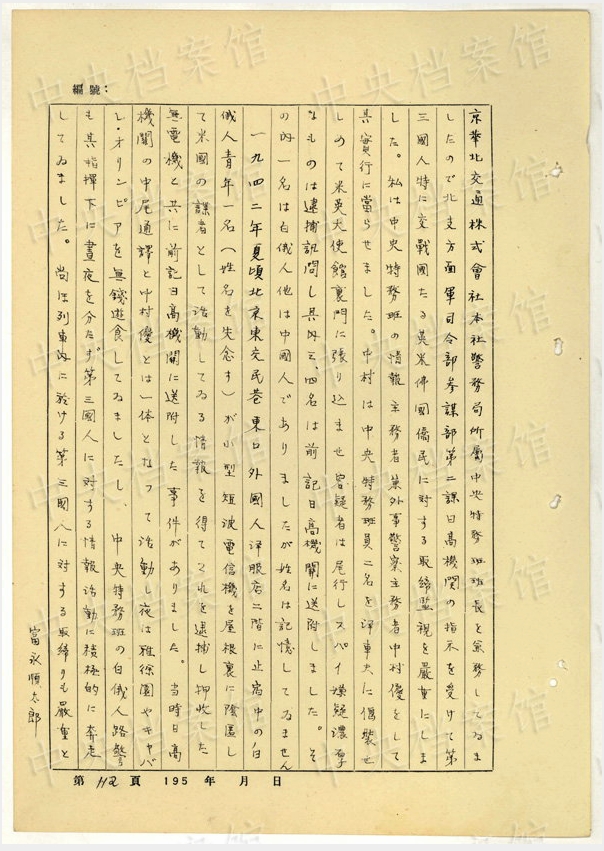 編號：
京華北交通株式會社本社警務局所屬中央特務班班長を兼務してゐま
したので北支方面軍司令部參謀部第二課日高機関の指示を受けて第
三國人特に交戰國たる英米佛國僑民に対する取締監視を嚴重にしま
した。私は中央特務班の情報主務者兼外事警察主務者中村優をして
其実行に當らせました。中村は中央特務班員二名を洋車夫に偽裝せ
しめて米英大使館裏門に張り込ませ容疑者は尾行しスパイ嫌疑濃厚
なものは逮捕訊問し其内三、四名は前記日高機関に送附しました。そ
の内一名は白俄人他は中國人でありましたが姓名は記憶してゐません
一九四二年夏頃北京東交民巷東口外國人洋服店二階に止宿中の白
俄人青年一名（姓名を失念す）が小型短波電信機を屋根裏に陰匿し
て米國の諜者として活動してゐる情報を得て之れを逮捕し押收した
無電機と共に前記日高機関に送附した事件がありました。当時日高
機関の中尾通譯と中村優とは一体となつて活動し夜は雅徐園やキャバ
レ・オリンピアを無錢遊食してゐましたし、中央特務班の白俄人路警
も其指揮下に晝夜を分たず第三國人に対する情報活動に積極的に奔走
してゐました。尚ほ列車内に於ける第三國人に対する取締りも嚴重と
富永順太郎
第 112 頁 195 年 月 日
中央档案馆